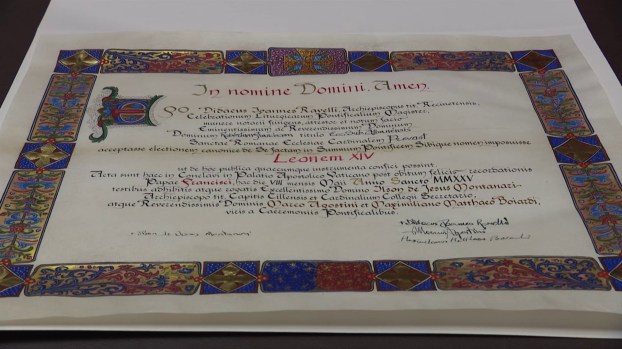 In nomine Domini. Amen.
Ego Didacus Ioannes Ravelli, Archiepiscopus tit. Recinetensis,
Celebrationum Liturgicarum Pontificalium Magister,
munere notarii fungens, attestor et notum facio
Eminentissimum ac Reverendissimum Dominum
Dominum titulo
Sanctae Romanae Ecclesiae Cardinalem Prevost
acceptasse electionem canonice de Se factam in Summum Pontificem Sibique nomen imposuisse
Leonem XIV
ut de hoc publica quaecumque instrumenta confici possint.
Acta sunt haec in Conclavi in Palatio Apostolico Vaticano post obitum felicis recordationis
Papae Francisci, hac die VIII mensis Maii Anno Sancto MMXXV
testibus adhibitis atque rogatis Excellentissimo Domino Ilson de Jesus Montanari
Archiepiscopo tit. Capitis Cillensis et Cardinalium Collegii Secretario,
atque Reverendissimis Dominis Marco Agostini et Maximiliano Matthaeo Boiardi,
viris a Caeremoniis Pontificalibus.